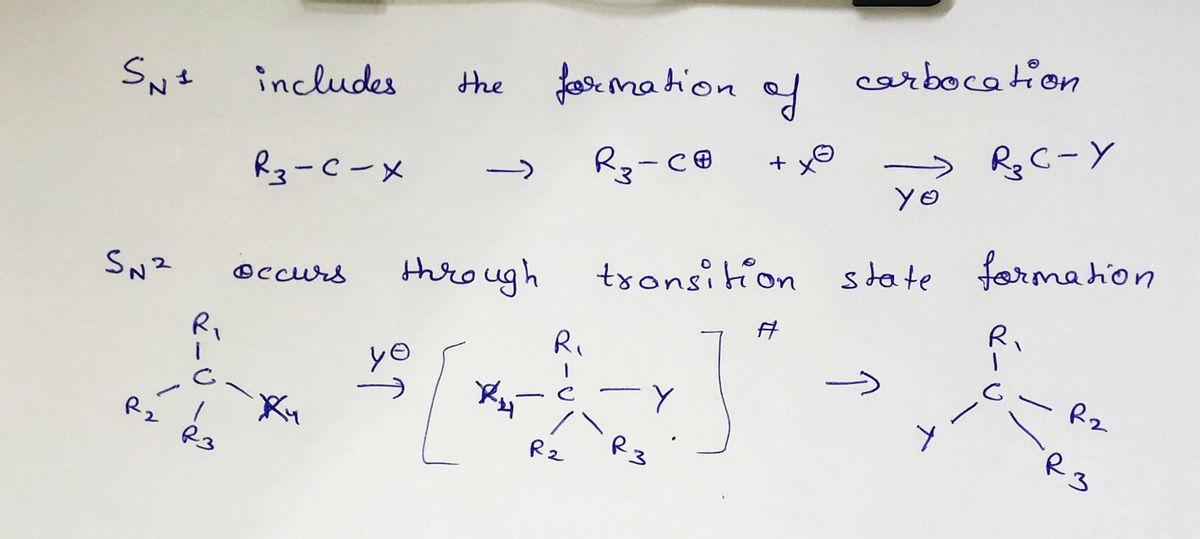 SN1 includes the formation of carbocation
R3-C-X → R3-C⊕ + X⊖ → R3C-Y
Y⊖
SN2 occurs through transition state formation
R1 R1 ≠ R1
C Y⊖ → [ C — Y ] → C
R2 R3 R2 R3 Y R2 R3